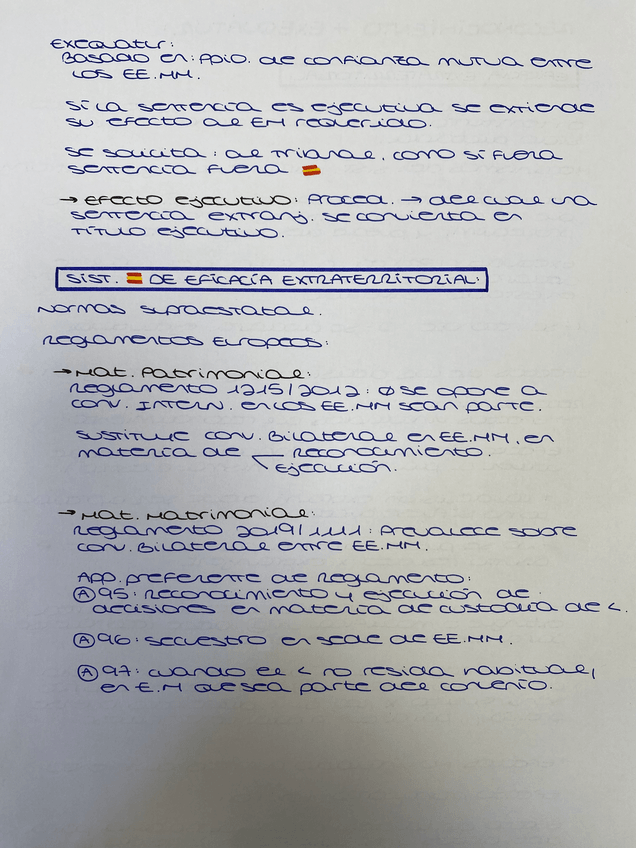 Exequatur:
Basado en: ppio. de confianza mutua entre
los EE.MM.
Si la sentencia es ejecutiva se extiende
su efecto al EM requerido.
Se solicita: al tribunal, como si fuera
sentencia fuera 🇪🇸
→ Efecto ejecutivo: proced. → del cual una
sentencia extranj. se convierta en
título ejecutivo.
SIST. 🇪🇸 DE EFICACÍA EXTRATERRITORIAL:
Normas supraestatal.
Reglamentos Europeos:
→ Mat. Patrimonial:
Reglamento 1215/2012: Ø se opone a
conv. Intern. en los EE.MM sean parte.
Sustituye conv. Bilateral en EE.MM. en
materia de — reconocimiento.
ejecución.
→ Mat. Matrimonial:
Reglamento 2019/1111: Prevalece sobre
conv. Bilateral entre EE.MM.
App. preferente de Reglamento:
Ⓐ 95: reconocimiento y ejecución de
decisiones en materia de custodia de <.
Ⓐ 96: secuestro en sede de EE.MM.
Ⓐ 97: cuando el < no resida habitual,
en E.M que sea parte del convenio.